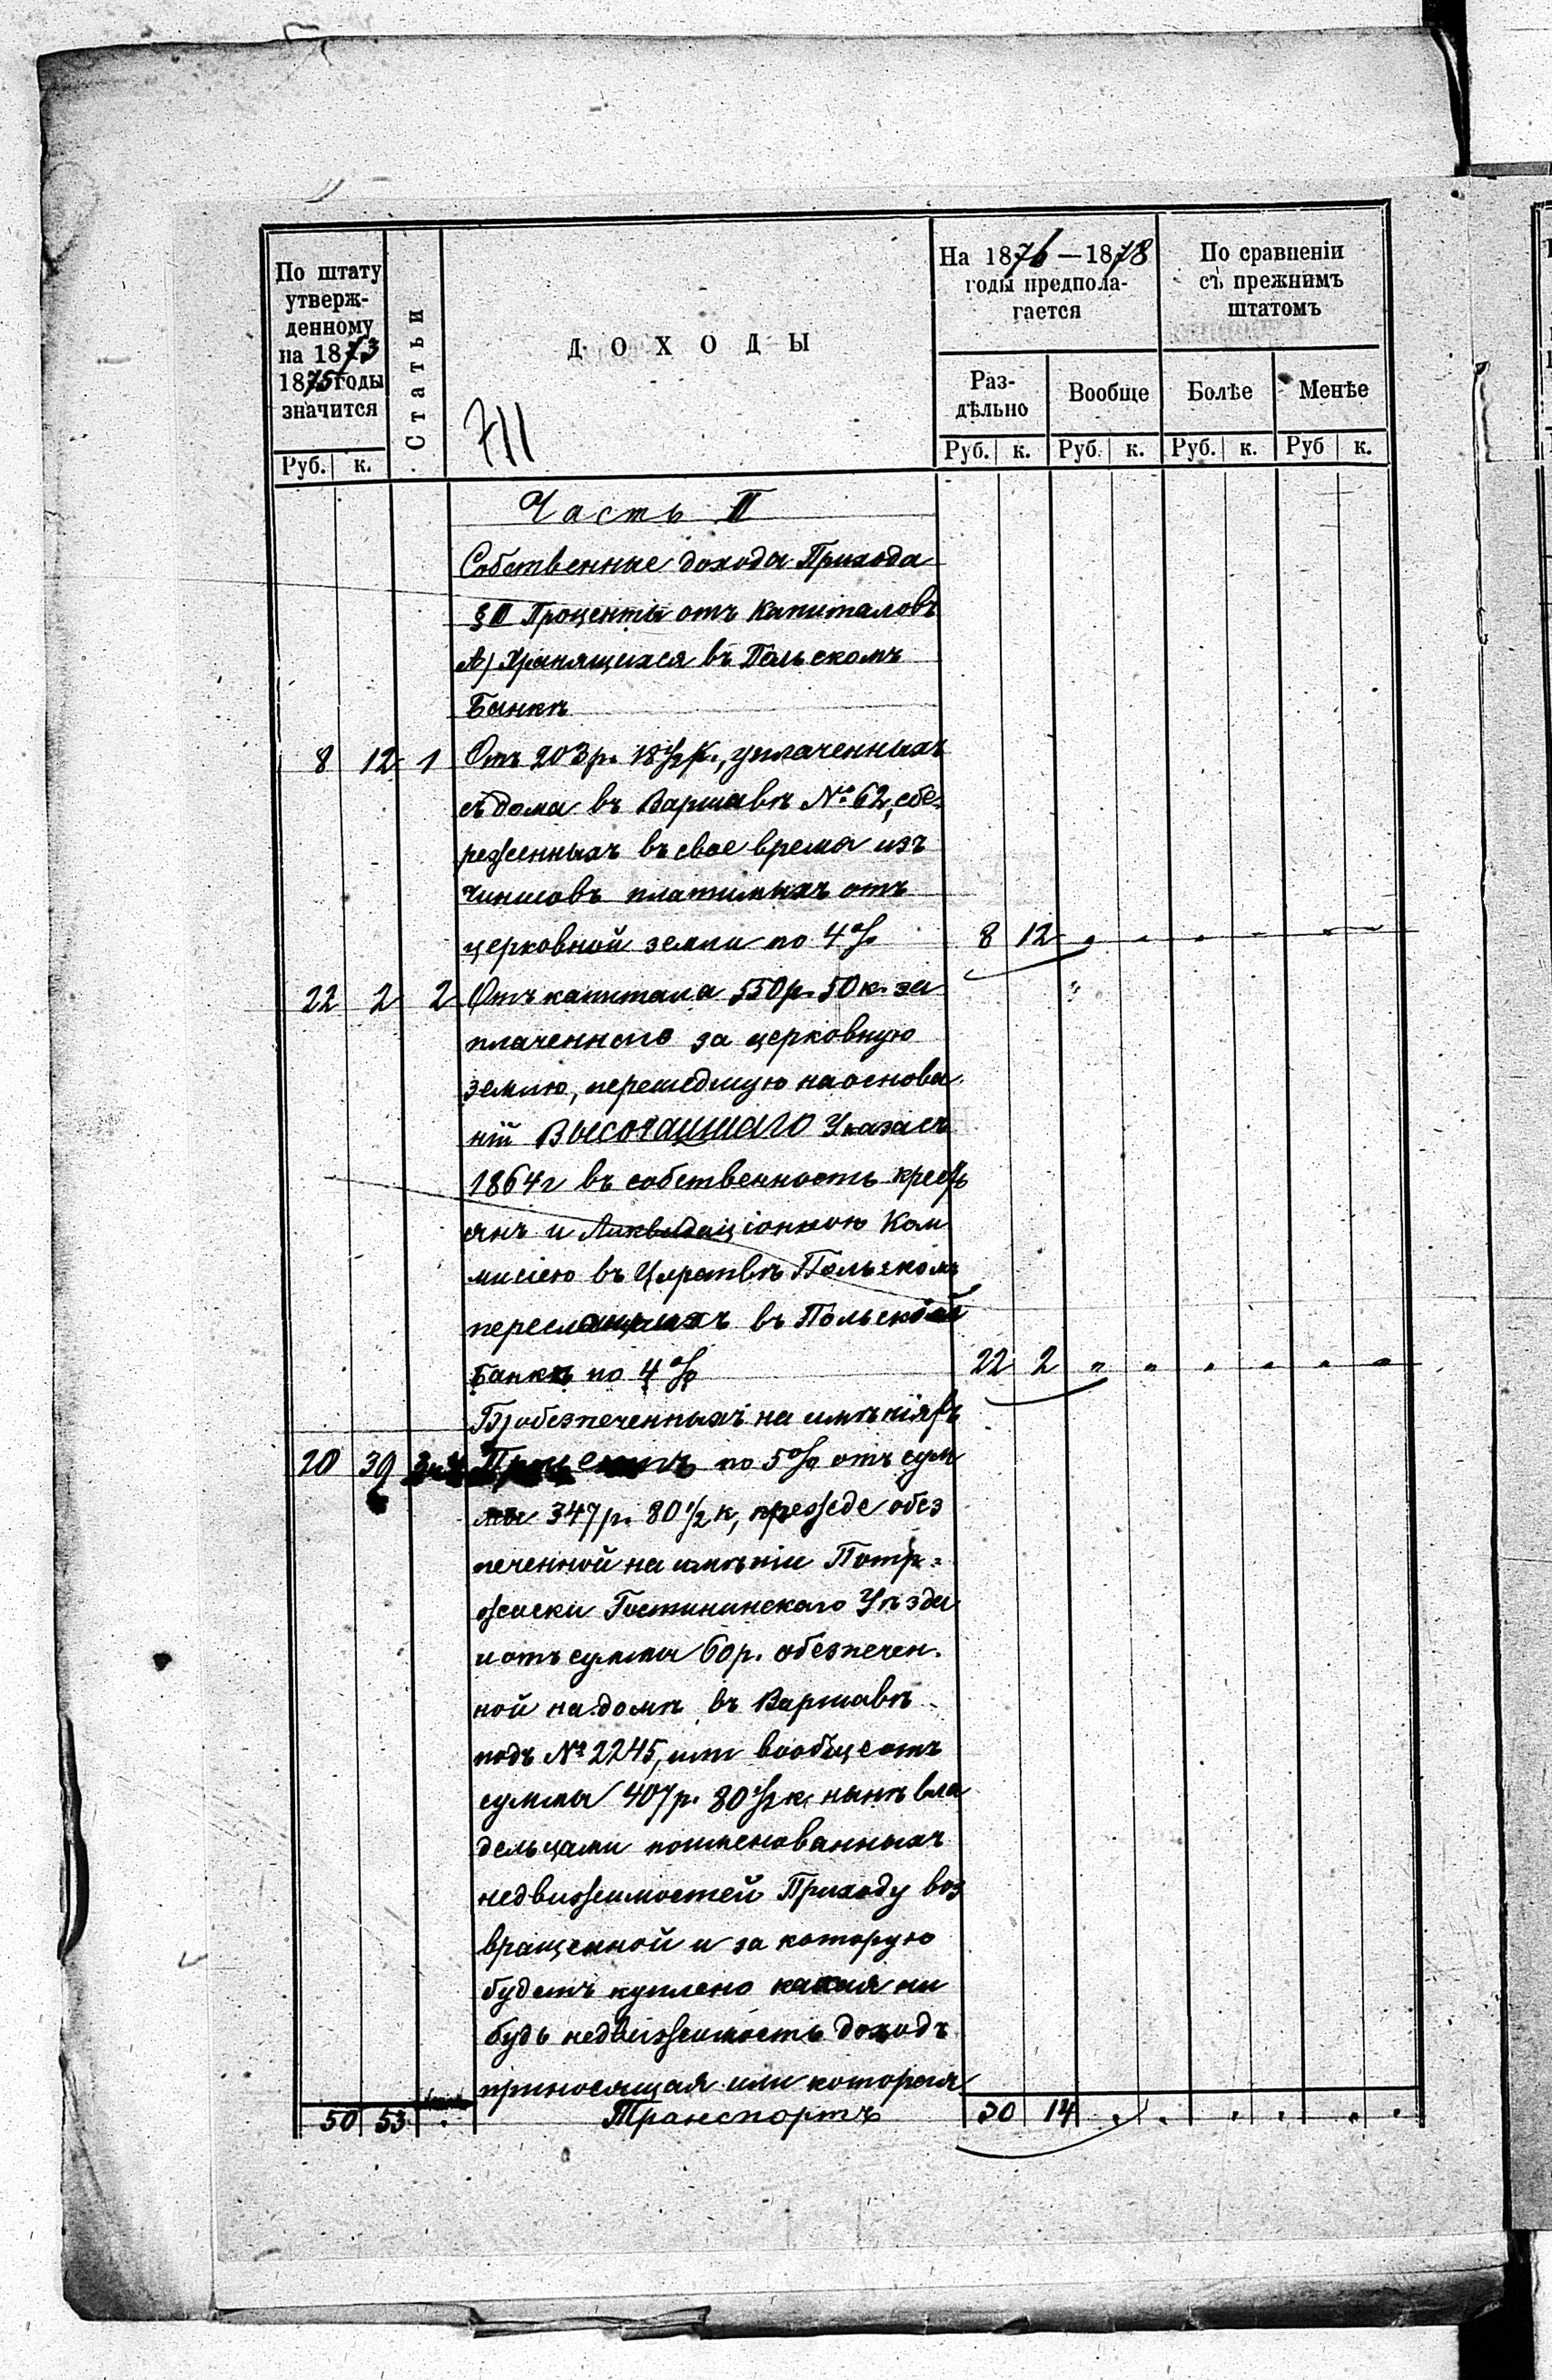 По штату
утверж-
денному
на 1873
1875 годы
значится
Руб. к.
Статьи
ДОХОДЫ
711
На 1876—1878
годы предпола-
гается
Раз-
дѣльно
Вообще
Руб. к. Руб. к.
По сравненію
съ прежнимъ
штатомъ
Болѣе Менѣе
Руб. к. Руб к.
Часть II
Собственные дохода Прихода
§ II Проценты отъ капиталовъ
А) Хранящихся въ Польскомъ
Банкѣ
8 12 1 Отъ 203 р. 18 1/2 к., уплаченныхъ
съ дома въ Варшавѣ № 62, сбе-
реженныхъ въ свое время изъ
чиншовъ платимыхъ отъ
церковной земли по 4% 8 12 " " " " " "
22 2 2 Отъ капитала 550 р. 50 к. за
плаченного за церковную
землю, перешедшую на основа
ніи Высочайшаго Указа съ
1864 г въ собственность кресть
янъ и Ликвидаціонною Ком
мисіею въ Царствѣ Польскомъ
въ Польскій
Банкъ по 4% 22 2 " " " " " "
Б) обезпеченныхъ на имѣніяхъ
20 39 3 и 4 Процентъ по 5% отъ сум
мы 347 р. 80 1/2 к, прежде обез
печенной на имѣніи Потр-
жаски Гостининскаго Уѣзда
и отъ суммы 60 р. обезпечен-
ной на домѣ въ Варшавѣ
подъ № 2245, или вообще отъ
суммы 407 р. 80 1/2 к. нынѣ вла
дельцами поименованныхъ
недвижимостей Приходу воз
вращенной и за которую
будетъ куплено какая ни
будь недвижимость доходъ
приносящая или которая
50 53 Транспортъ 30 14 " " " " " "